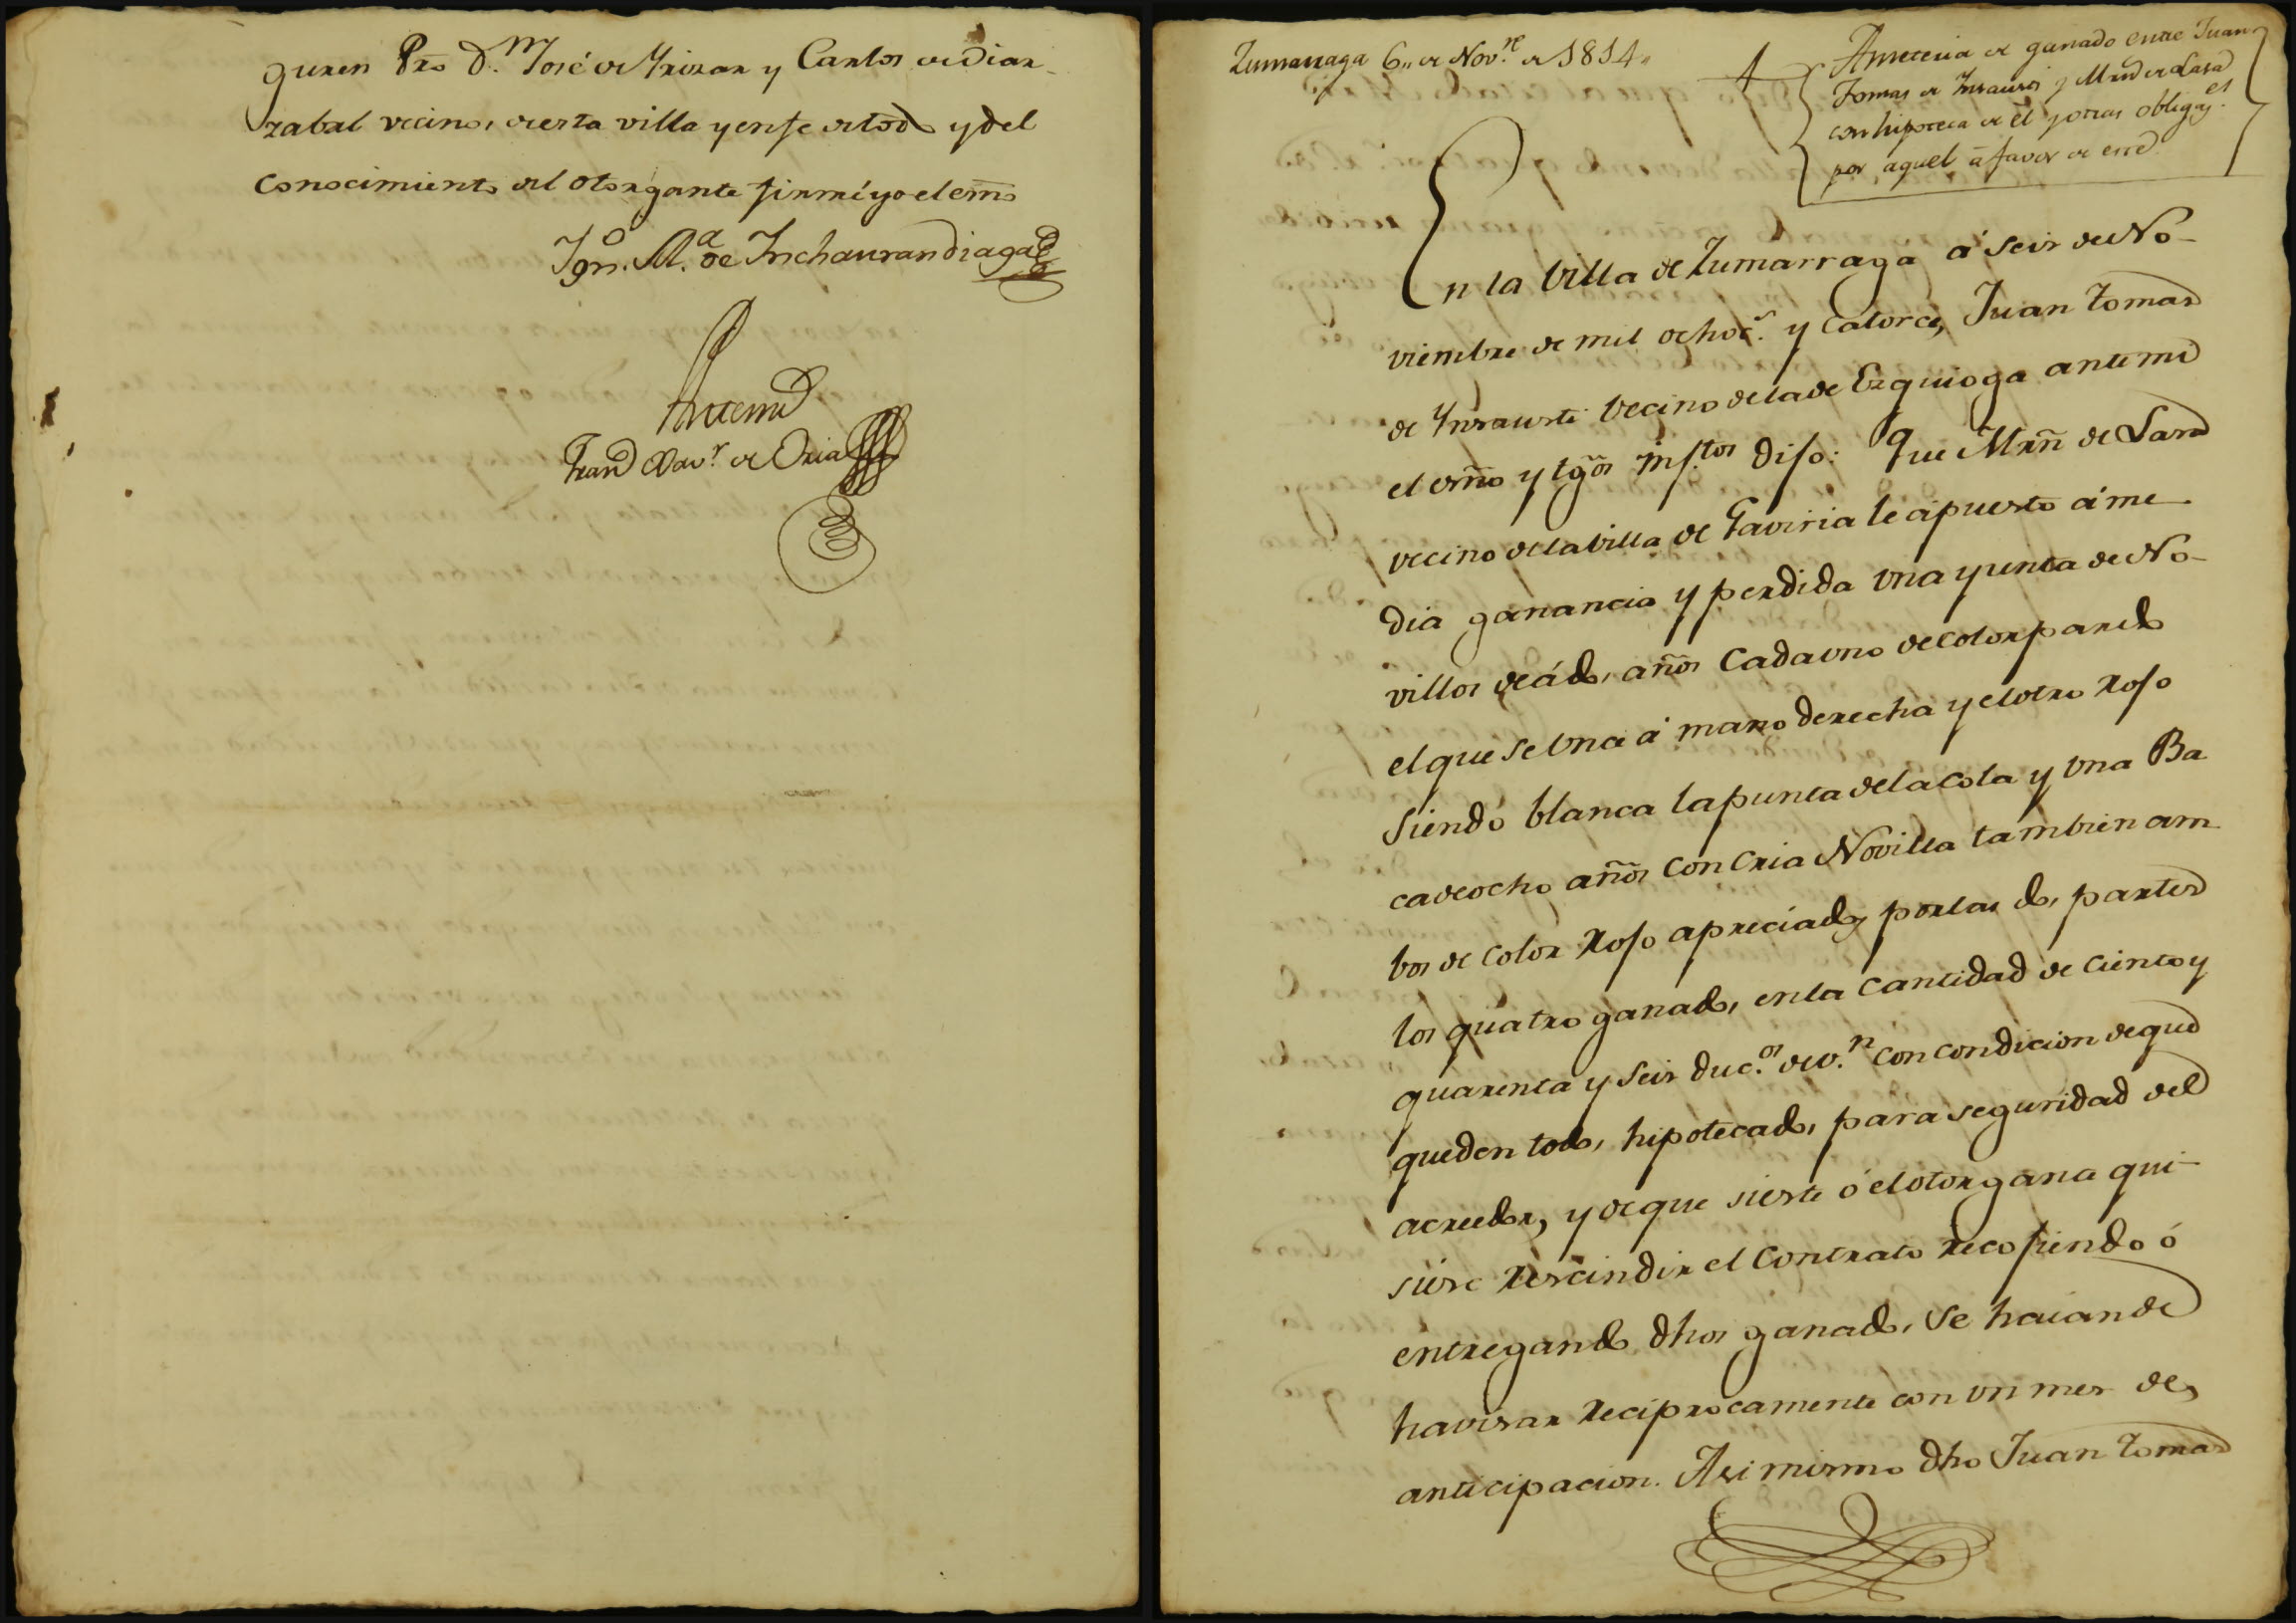 guren Pro. D.n José de Yrizar y Carlos de Diar-
zabal vecinos de esta villa y en fe de todo y del
conocimiento del otorgante firmé yo el emo
Ygn.o M.a de Inchaurandiaga
Antemi
Fran Xav.r de Oria
Zumarraga 6,, de Nov.re de 1814,,
Ametería de ganado entre Juan
Tomas de Insausti y Mrn de Lasa
con hipoteca de él y otras obligas.es
por aquel á favor de este
En la Villa de Zumarraga á seis de No-
viembre de mil ochoc.s y Catorce, Juan Tomas
de Ynsausti Vecino de la de Ezquioga ante mi
el esño y tgõs infr.tos dijo: Que Mrñ de Lasa
vecino de la Villa de Gaviria le á puesto á me-
dia ganancia y perdida una yunta de No-
villos de á dos años Cada uno de color pardo
el que se unce á mano derecha y el otro Rojo
siendo blanca la punta de la cola y una Ba
ca de ocho años con Cria Novilla tambien am
bos de Color Rojo apreciados por las dos partes
los quatro ganados en la Cantidad de Ciento y
quarenta y seis duc.os de v.n con condicion de que
queden todos hipotecados para seguridad del
acreedor, y de que si este ó el otorgante qui-
siere Rescindir el Contrato recojiendo ó
entregando dhos ganados se haian de
havisar Reciprocamente con un mes de
anticipacion. Asi mismo dho Juan Tomas